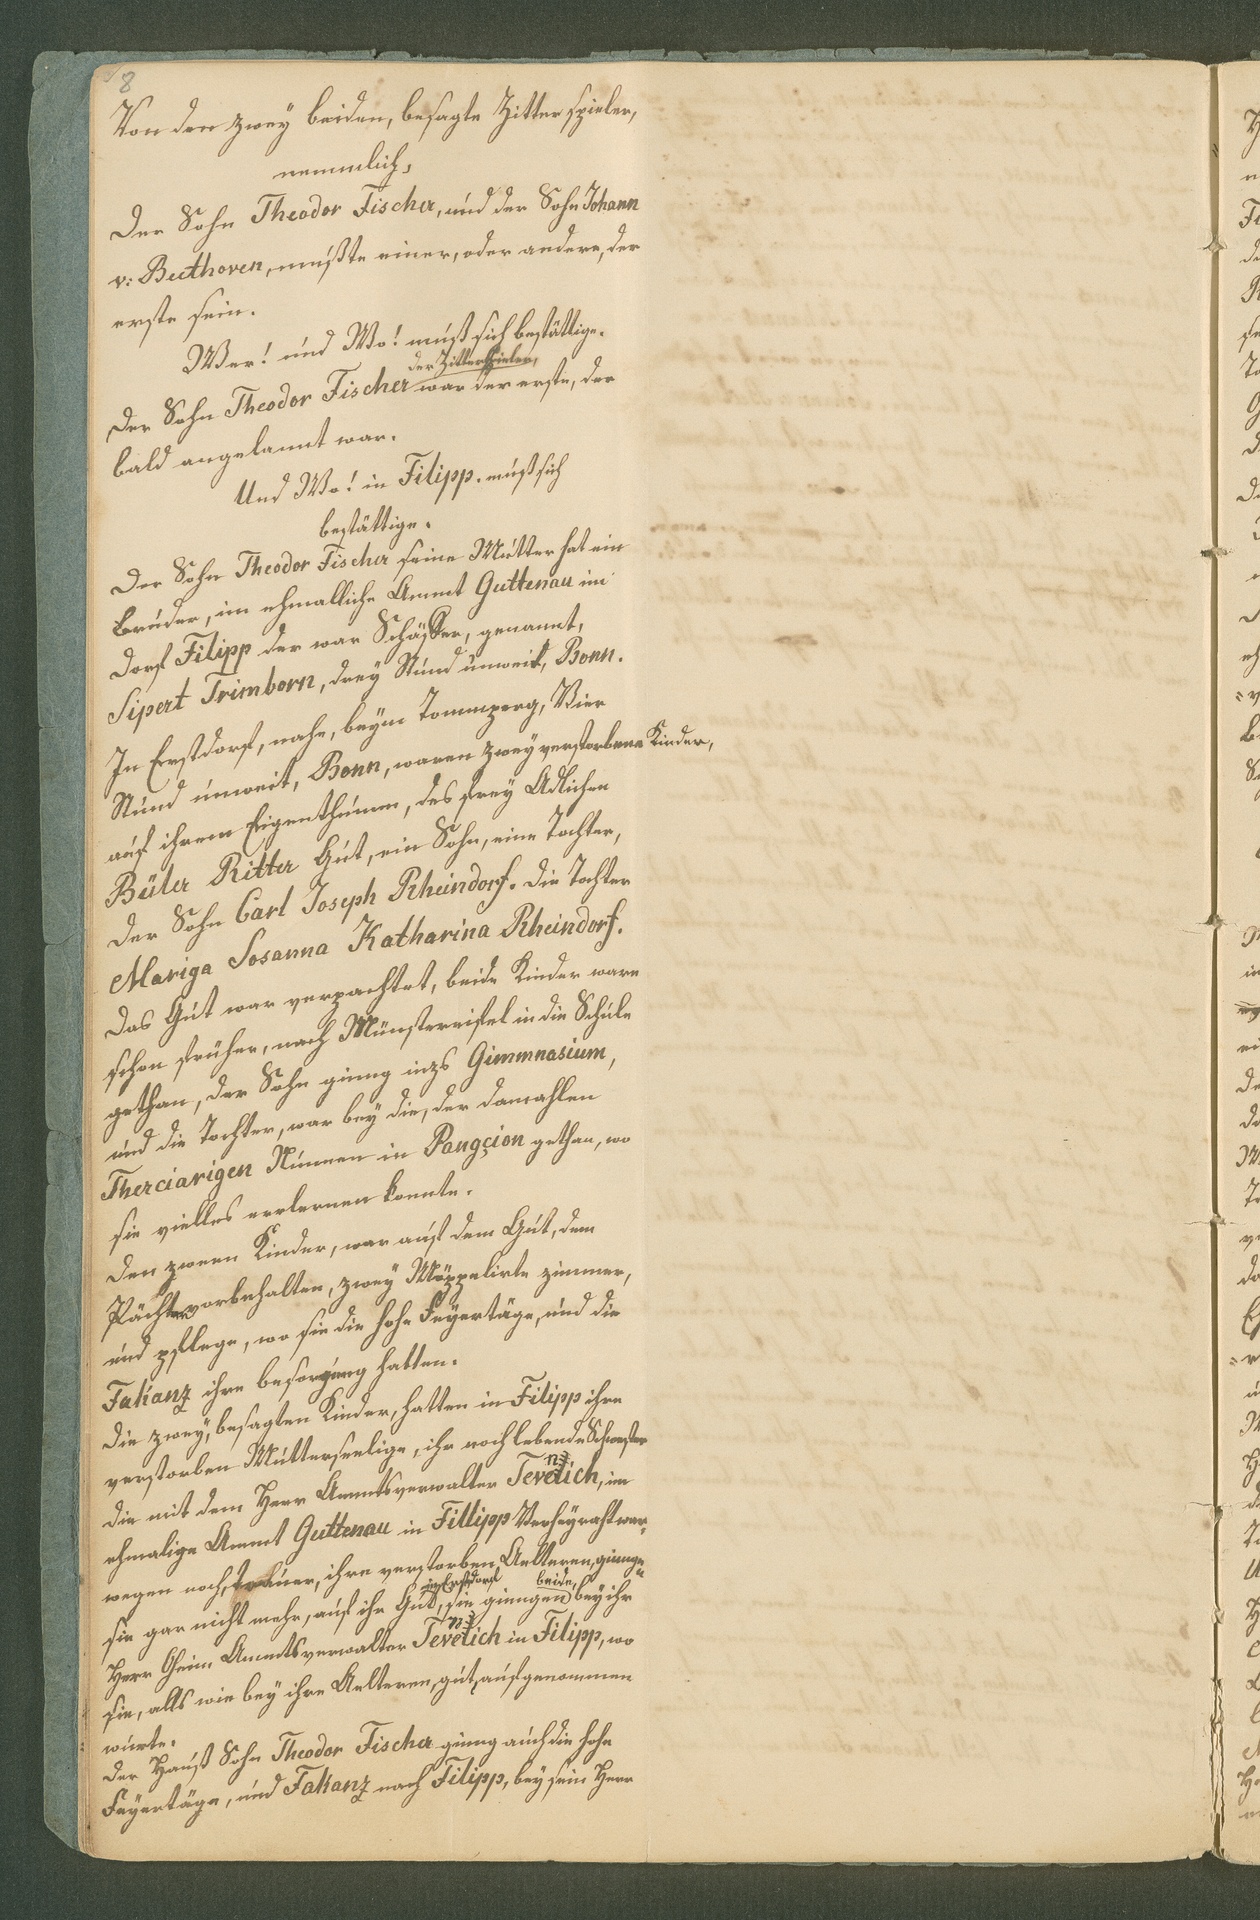 8
Von den zwey beiden, besagte Zitter spieler,
nemmlich,
Der Sohn Theodor Fischer, und der Sohn Johann
v: Beethoven, mußte einer, oder andere, der
erste sein.
Wer! und Wo! muß sich bestättige.
der Zitterspieler,
Der Sohn Theodor Fischer war der erste, der
bald angelannt war.
Und Wo! in Filipp. muß sich
bestättige.
Der Sohn Theodor Fischer seine Mutter hat ein
Bruder, im ehmalliche Ammt Guttenau im
Dorf Filipp der war Schäffer, genannt,
Sipert Trimborn, drey Stund unweit, Bonn.
In Erstdorf, nahe, beym Tommperg, Vier
Stund unweit, Bonn, waren zwey verstorbene Kinder,
auf ihrem Eigenthumm, des frey Adlichen
Büler Ritter Gut, ein Sohn, eine Tochter,
der Sohn Carl Joseph Rheindorf. die Tochter
Mariga Sosanna Katharina Rheindorf.
Das Gut war verpachtet, beide Kinder ware
schon früher, nach Münstereifel in die Schule
gethan, der Sohn ginng inzs Gimmnasium,
und die Tochter, war bey die, der damahlen
Therciarigen Nunnen in Pangçion gethan, wo
sie vielles errlernen konnte.
Den zween Kinder, war auf dem Gut, dem
Pächter vorbehalten, zwey Möppelirte zimmer,
und pflege, wo sie die hohe Feyertäge, und die
Fakanz ihre besorgung hatten.
Die zwey, besagten Kinder, hatten in Filipp ihre
verstorben Mutterseelige, ihr noch lebende Schwester
die mit dem Herr Ammtsverwalter Tevelich, im
n
ehmalige Ammt Guttenau in Fillipp Verheyraht war,
wegen noch, trauer, ihre verstorben Aelteren, ginnge
sie gar nicht mehr, auf ihr Gut, sie ginngen bey ihr
in Erstdorf beide,
Herr Oheim Ammtsverwalter Tevelich in Filipp, wo
n
sie, alls wie bey ihre Aelteren, gut, aufgenommen
wurte.
Der Hauß Sohn Theodor Fischer ginng auch die hohe
Feyertäge, und Fakanz nach Filipp, bey sein Herr